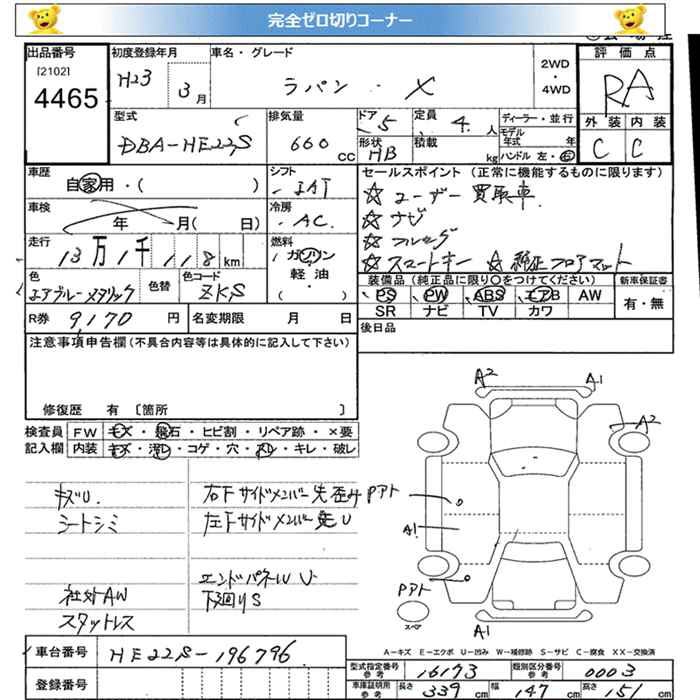 完全ゼロ切りコーナー
出品番号 初度登録年月 車名・グレード 評価点
[2102] 4465
H23 3月 ラパン・X 2WD・4WD RA
型式 排気量 ドア 5 定員 4.人 ディーラー・並行 外装 内装
DBA-HE22S 660 CC 形状 HB 積載 kg モデル年式 年 ハンドル 左・右 C C
車歴 シフト セールスポイント (正常に機能するものに限ります)
自家用・( ) AT ☆ユーザー買取車.
車検 年 月( 日) 冷房 AC. ☆ナビ
☆フルセグ
走行 13万1千118km 燃料 ガソリン 軽油 ・( ) ☆スマートキー ☆純正フロアマット
色 色替 色コード 装備品 (純正品に限り○をつけてください) 新車保証書
エアブルーメタリック ZKS PS PW ABS エアB AW 有・無
SR ナビ TV カワ
R券 9,170 円 名変期限 月 日 後日品
注意事項申告欄(不具合内容等は具体的に記入して下さい)
修復歴 有 〔箇所 〕
検査員 FW キズ・飛石・ヒビ割・リペア跡・×要
記入欄 内装 キズ・汚レ・コゲ・穴・スレ・キレ・破レ
キズU. 右下サイドメンバー先歪み
シートシミ 左下サイドメンバー先U
エンドパネルU
社外AW 下廻りS
スタットレス
A2 A1
A2
Pアト
A1
Pアト
スペア
A1
A-キズ E-エクボ U-凹み W-補修跡 S-サビ C-腐食 XX-交換済
車台番号 HE22S-196796
型式指定番号 参考 16173 類別区分番号 参考 0003
登録番号
車庫証明用 参考 長さ 339 cm 幅 147 cm 高さ 151 cm